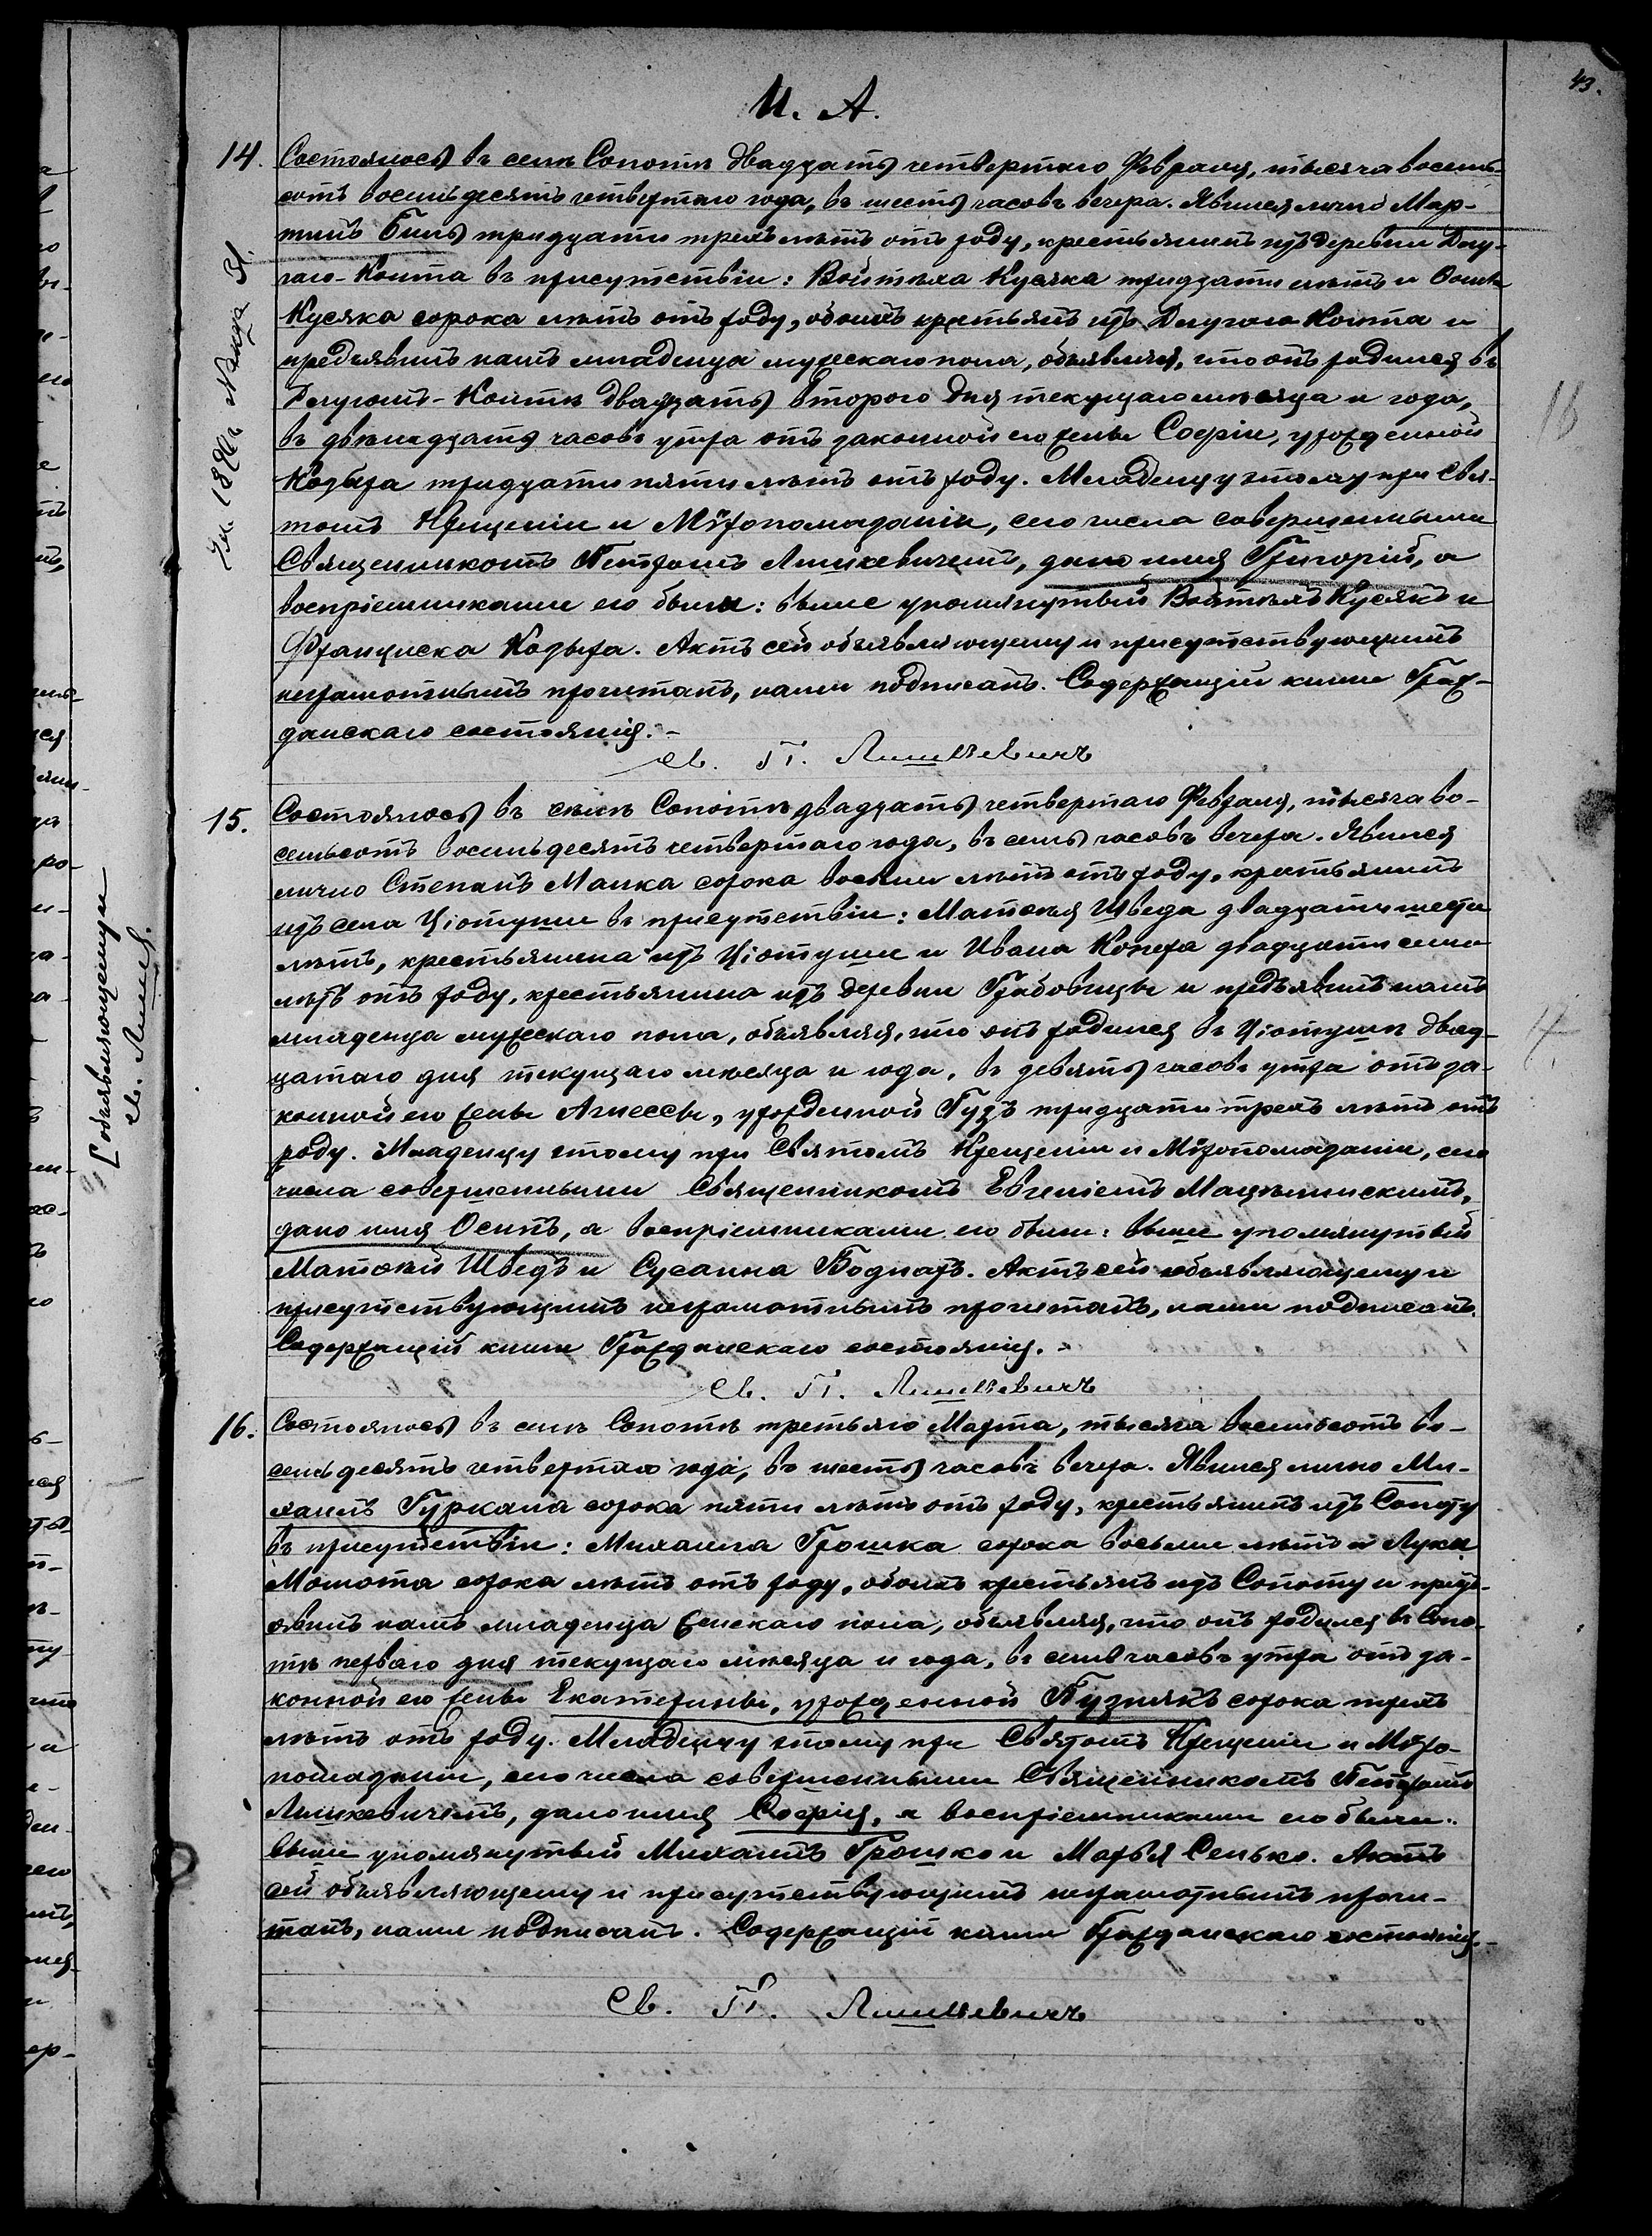 43.
И. А.
14. Состоялось въ селѣ Сопотѣ двадцать четвертаго Февраля, тысяча восемь-
сотъ восемьдесятъ четвертаго года, въ шесть часовъ вечера. Явился лично Мар-
тинъ Биль тридцати трехъ лѣтъ отъ роду, крестьянинъ изъ деревни Длу-
гаго-Конта въ присутствіи: Войтѣха Кусяка тридцати лѣтъ и
Кусяка сорока лѣтъ отъ роду, обоихъ крестьянъ изъ Длугаго Конта и
предъявилъ намъ младенца мужескаго пола, объявляя, что онъ родился въ
Длугомъ-Контѣ двадцать втораго дня текущаго мѣсяца и года,
въ двѣнадцать часовъ утра отъ законной его жены Софіи, урожденной
Кодыра тридцати пяти лѣтъ отъ роду. Младенцу этому при Свя-
томъ Крещеніи и Мѵропомазаніи, сего числа совершенными
Священникомъ Петромъ Лишкевичемъ, дано имя Григорій, а
воспріемниками его были: выше упомянутый Войтѣхъ Кусякъ и
Франциска Кодыра. Актъ сей объявляющему и присутствующимъ
неграмотнымъ прочитанъ, нами подписанъ. Содержащій книги Граж-
данскаго состоянія.-
Св. П. Лишкевичъ
15. Состоялось въ селѣ Сопотѣ двадцать четвертаго Февраля, тысяча во-
семьсотъ восемьдесятъ четвертаго года, въ семь часовъ вечера. Явился
лично Степанъ Малка сорока восьми лѣтъ отъ роду, крестьянинъ
изъ села Ціотуши въ присутствіи: Матѳѣя Шведа двадцати шести
лѣтъ, крестьянина изъ Ціотуши и Ивана Копера двадцати семи
лѣтъ отъ роду, крестьянина изъ деревни Грабовицы и предъявилъ намъ
младенца мужескаго пола, объявляя, что онъ родился въ Ціотушѣ двад-
цатаго дня текущаго мѣсяца и года, въ девять часовъ утра отъ за-
конной его жены Агнессы, урожденной Гузъ тридцати трехъ лѣтъ отъ
роду. Младенцу этому при Святомъ Крещеніи и Мѵропомазаніи, сего
числа совершенными Священникомъ Евгеніемъ
дано имя Осипъ, а воспріемниками его были: выше упомянутый
Матѳѣй Шведъ и Сусанна Боднаръ. Актъ сей объявляющему и
присутствующимъ неграмотнымъ прочитанъ, нами подписанъ.
Содержащій книги Гражданскаго состоянія.-
Св. П. Лишкевичъ
16. Состоялось въ селѣ Сопотѣ третьяго Марта, тысяча восемьсотъ во-
семьдесятъ четвертаго года, въ шесть часовъ вечера. Явился лично Ми-
хаилъ Гуркала сорока пяти лѣтъ отъ роду, крестьянинъ изъ Сопоту
въ присутствіи: Михаила Грошка сорока восьми лѣтъ и Луки
Момота сорока лѣтъ отъ роду, обоихъ крестьянъ изъ Сопоту и предъ-
явилъ намъ младенца женскаго пола, объявляя, что онъ родился въ Сопо-
тѣ перваго дня текущаго мѣсяца и года, въ семь часовъ утра отъ за-
конной его жены Екатерины, урожденной Пузнякъ сорока трехъ
лѣтъ отъ роду. Младенцу этому при Святомъ Крещеніи и Мѵро-
помазаніи, сего числа совершенными Священникомъ Петромъ
Лишкевичемъ, дано имя Софія, а воспріемниками его были:
выше упомянутый Михаилъ Грошко и Марья Сенько. Актъ
сей объявляющему и присутствующимъ неграмотнымъ прочи-
танъ, нами подписанъ. Содержащій книги Гражданскаго состоянія.-
Св. П. Лишкевичъ
16
объявляющему и
Св. Лишк.